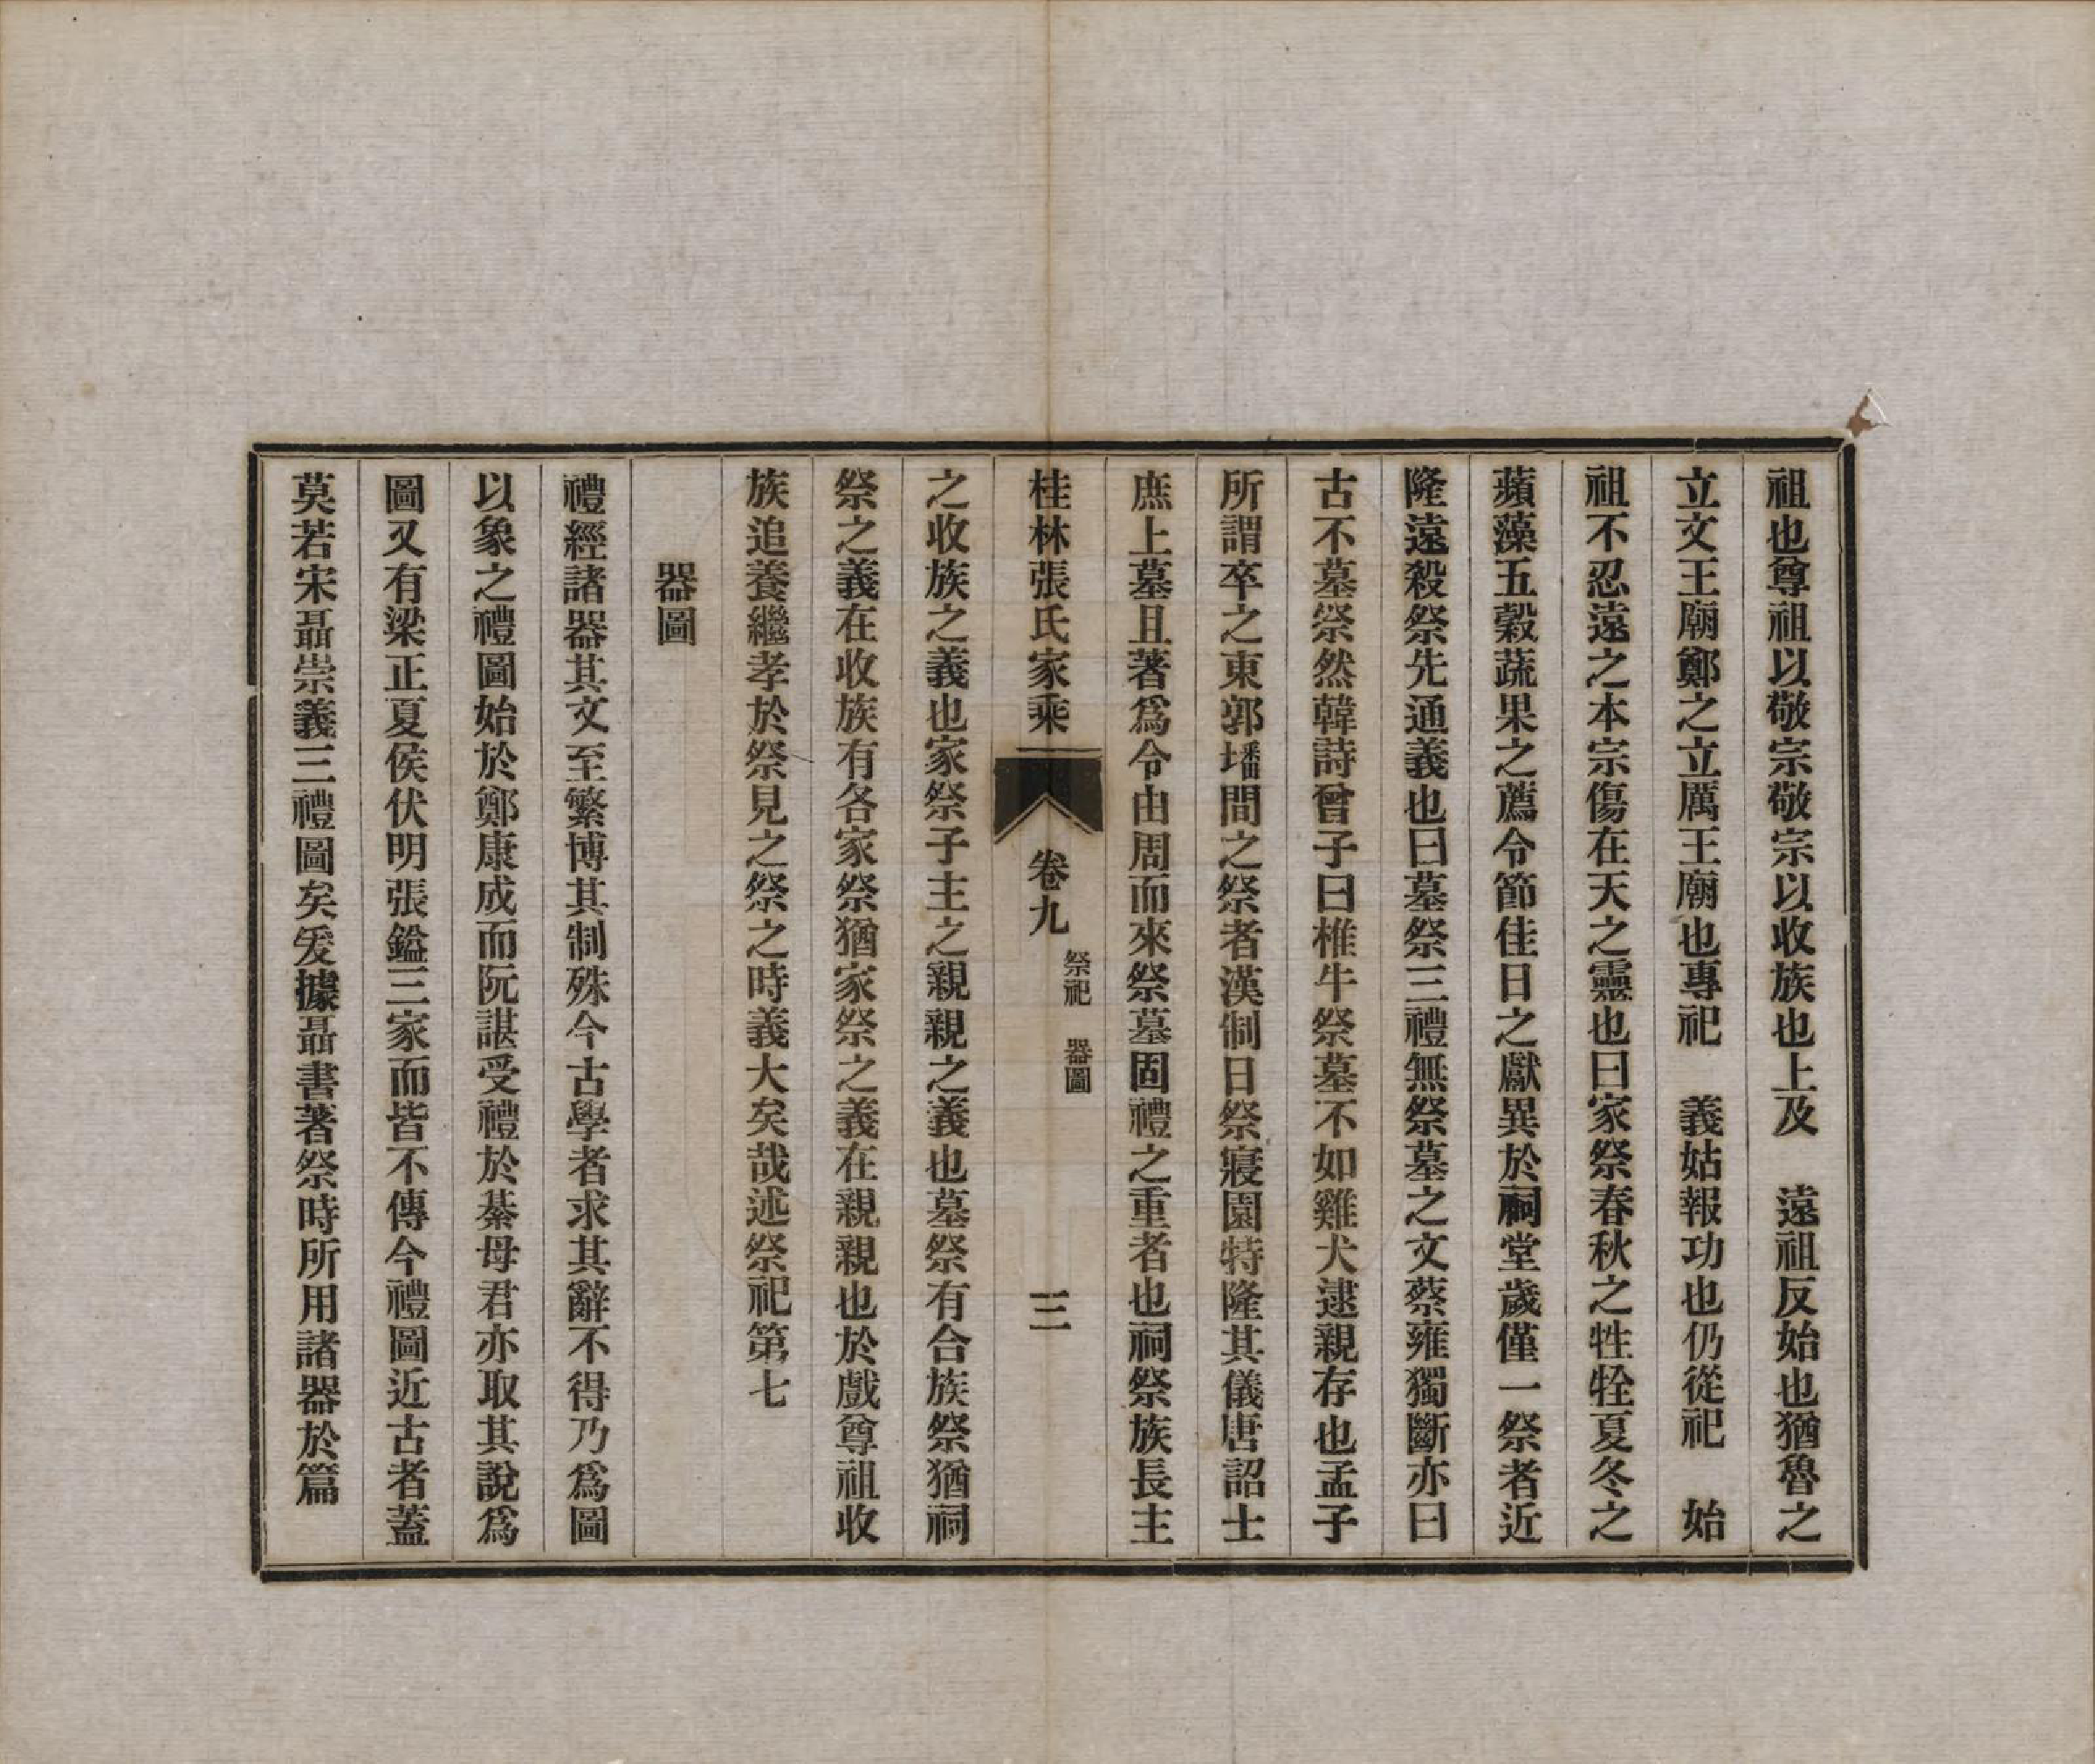 祖也尊祖以敬宗敬宗以收族也上及　遠祖反始也猶魯之
立文王廟鄭之立厲王廟也專祀　義姑報功也仍從祀　始
祖不忍遠之本宗傷在天之靈也曰家祭春秋之牲牷夏冬之
蘋藻五穀蔬果之薦令節佳日之獻異於祠堂歲僅一祭者近
隆遠殺祭先通義也曰墓祭三禮無祭墓之文蔡雍獨斷亦曰
古不墓祭然韓詩曾子曰椎牛祭墓不如雞犬逮親存也孟子
所謂卒之東郭墦間之祭者漢制日祭寢園特隆其儀唐詔士
庶上墓且著爲令由周而來祭墓固禮之重者也祠祭族長主
桂林張氏家乘　卷九　祭祀　器圖　三
之收族之義也家祭子主之親親之義也墓祭有合族祭猶祠
祭之義在收族有各家祭猶家祭之義在親親也於戲尊祖收
族追養繼孝於祭見之祭之時義大矣哉述祭祀第七
器圖
禮經諸器其文至繁博其制殊今古學者求其辭不得乃爲圖
以象之禮圖始於鄭康成而阮諶受禮於綦母君亦取其說爲
圖又有梁正夏侯伏明張鎰三家而皆不傳今禮圖近古者蓋
莫若宋聶崇義三禮圖矣爰據聶書著祭時所用諸器於篇